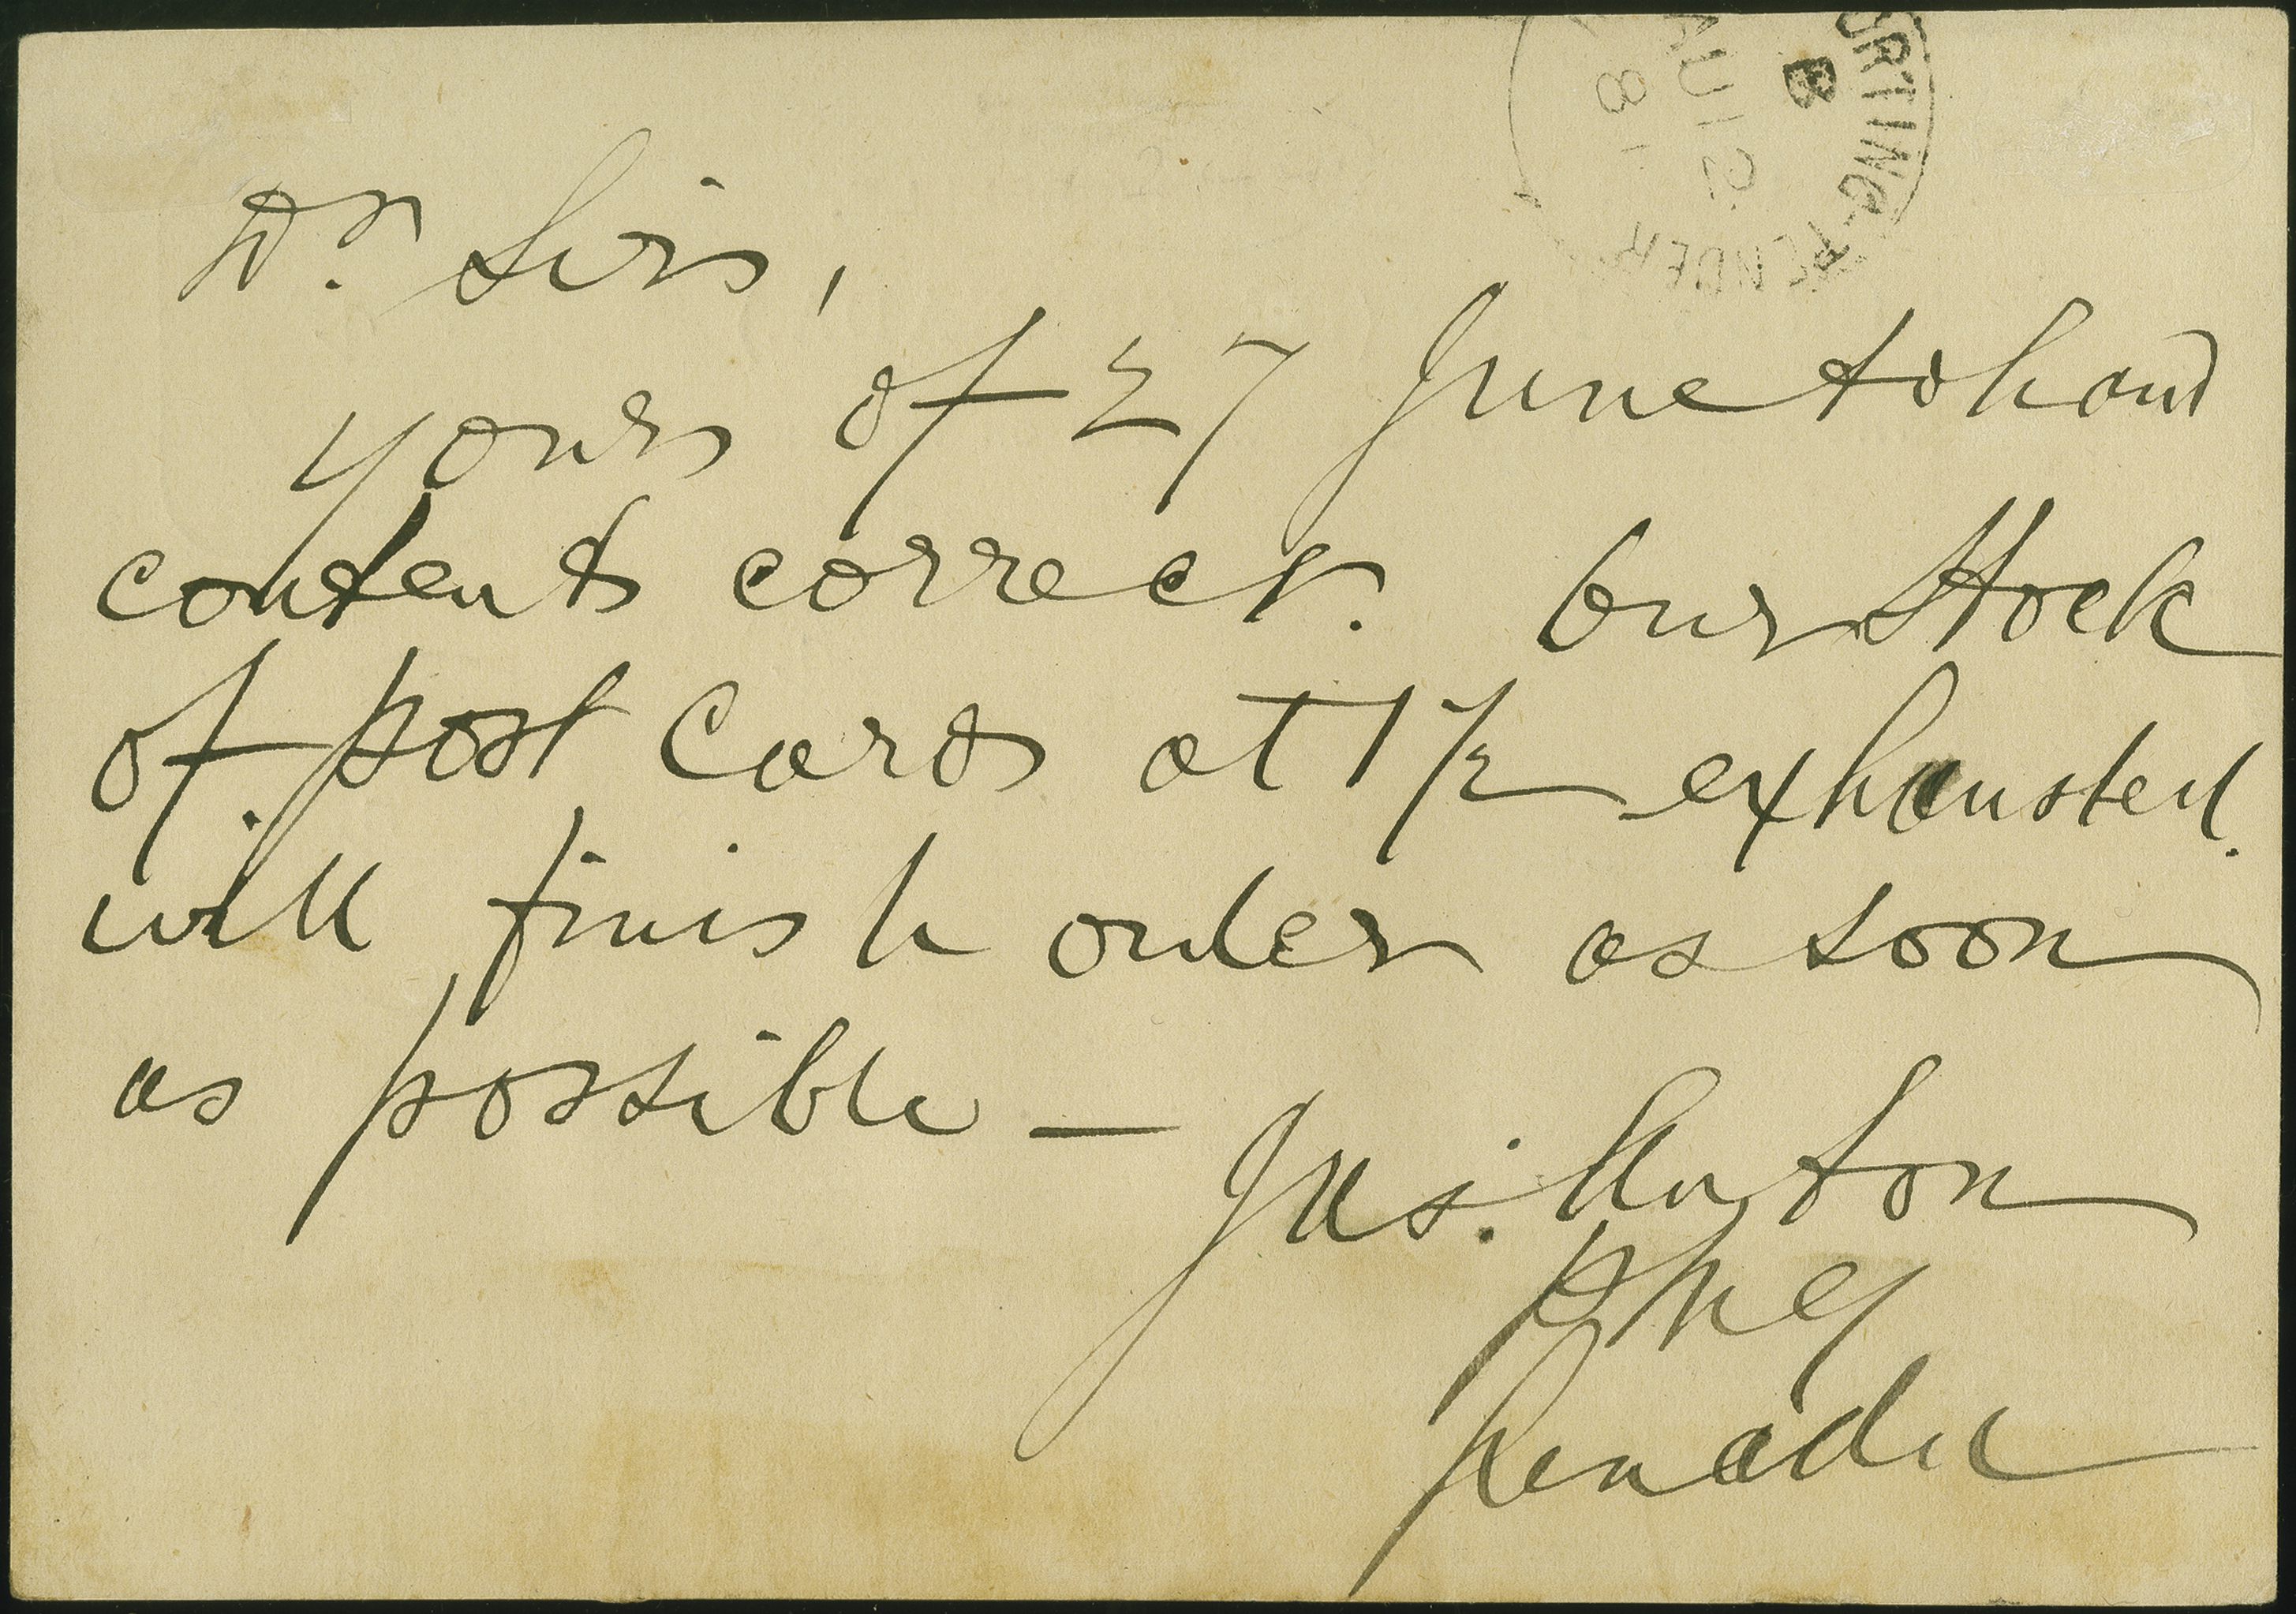 Dr. Sirs,
yours of 27 June to hand
contents correct. Our Stock
of post Cards at 1½ exhausted.
will finish order as soon
as possible —
Jas. Anton
PMG
Canada
AU 12
81
B
TENDER